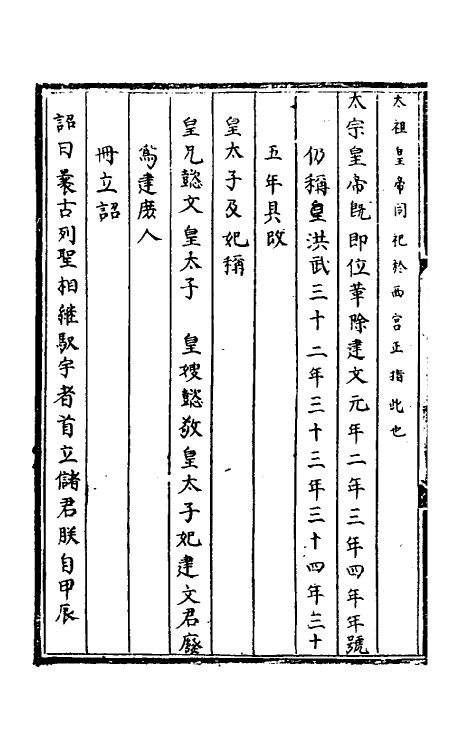 太祖皇帝同祀於西宮正指此也
太宗皇帝既即位革除建文元年二年三年四年年號
仍稱皇洪武三十二年三十三年三十四年三十
五年具改
皇太子及妃稱
皇兄懿文皇太子　皇嫂懿敬皇太子妃建文君廢
為建庶人
冊立詔
詔曰蓑古列聖相繼馭宇者首立儲君朕自甲辰